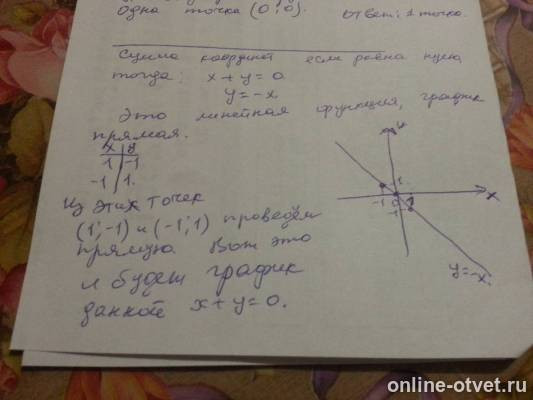 одна точка (0;0). Ответ: 1 точка.
Сумма координат если равна нулю
тогда: x + y = 0
y = -x
Это линейная функция, график
прямая.
x | y
1 | -1
-1 | 1.
Из этих точек
(1;-1) и (-1;1) проведём
прямую. Вот это
и будет график
данной x + y = 0.
y
1
-1 0 1 x
-1
y=-x.
online-otvet.ru